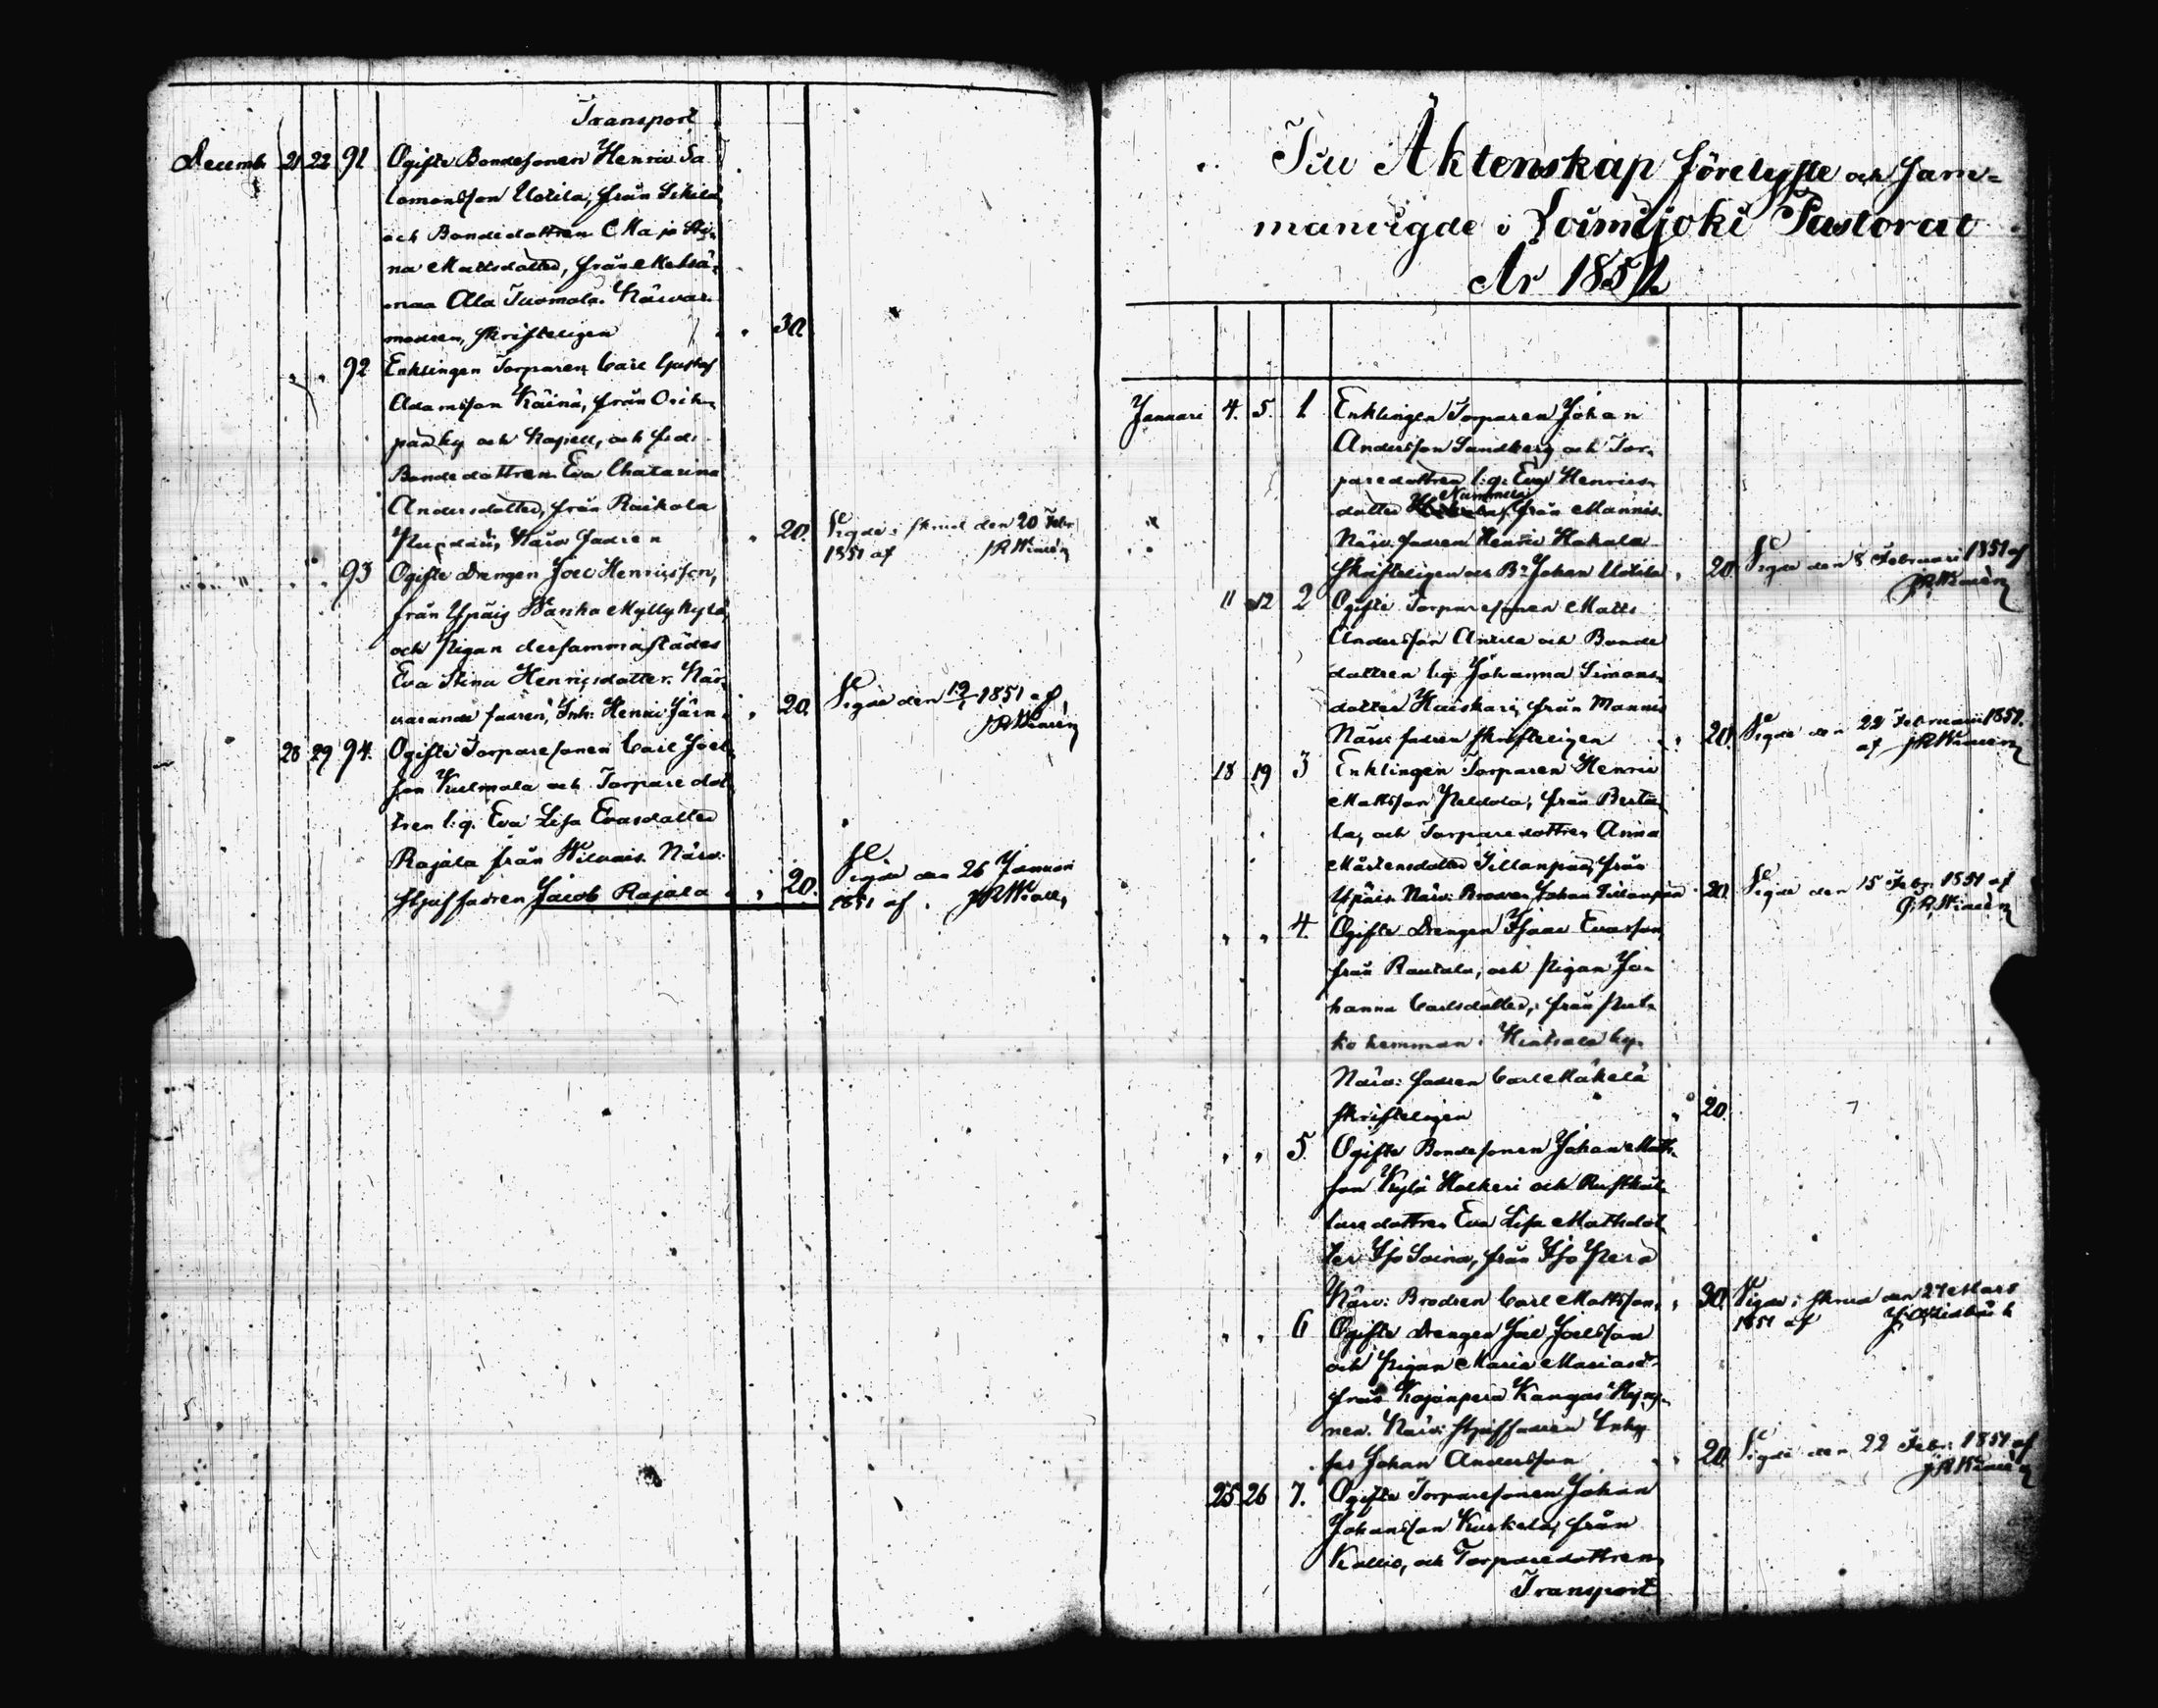 Transport
Decemb 21 22 91 Ogifte Bondesonen Henric Sa
lomonsson Uotila, från Sikilä
och Bondedottren Maja Sti-
na Mattsdotter, från Metsä-
maa Ala Tuomola. Närvar.
modren, skrifteligen " 30.
" " 92 Enklingen Torparen Carl Gustaf
Adamsson Käinä, från
och Kapell, och
Bondedottren Eva Chatarina
Andersdotter, från Raikola
Närv fadren " 20. Vigde i Skrud den 20 Febr
1851 af
" " 93 Ogifte Drengen Joel Henricsson,
från Ypäis Wanha Myllykylä,
och Pigan dersammastädes
Eva Stina Henricsdotter. När-
varande fadren, Inh: Henric Järn " 20. Vigde den 12/1 1851 af
28 29 94. Ogifte Torparesonen Carl Joels
son Kulmala och Torparedot
tren l:g. Eva Lisa Evasdotter
Rajala från Wilvais. Närv:
Styffadren Jacob Rajala " 20. Vigde den 26 Januari
1851 af
Til Äktenskap förelyste och Sam-
manvigde i Loimijoki Pastorat
År 1851
Januari 4. 5. 1 Enklingen Torparen Johan
Andersson Sandberg och Tor-
paredottren l:g: Eva Henrics-
dotter Nummela från Männis.
Närv. fadren Henric Hakala
skrifteligen och Br Johan Uotila " 20. Vigde den 8 Februari 1851 af
11 12 2 Ogifte Torparesonen Matts
Andersson Anttila och Bonde
dottren l:g: Johanna Simons-
dotter från Mannis
Närv: fadren skrifteligen " 20. Vigde den 22 Februari 1851.
af
18 19 3 Enklingen Torparen Henric
Mattsson Peldola, från
la, och Torparedottren Anna
Mårtensdotter Sillanpää, från
Ypäis. Närv: Brodren Johan Sillanpää 20. Vigde den 15 Febr. 1851 af
" " 4. Ogifte Drengen Isaac Evasson,
från Rautala, och Pigan Jo-
hanna Carlsdotter, från
ko hemman i by.
Närv: fadren Carl Mäkelä
skrifteligen " 20.
" " 5. Ogifte Bondesonen Johan Matts-
son Kylä Holkeri och Rusthål-
laredottren Eva Lisa Mattsdot
ter Iso Soini, från Iso Perä
Närv: Brodren Carl Mattsson, " 30. Vigde i Skrud den 27 Mars
1851 af
" " 6 Ogifte Drengen Joel Joelsson
och Pigan Maria Mariasd:
från Kojonperä Kangas
nen. Närv: styffadren Inhy
ses Johan Andersson " 20. Vigde den 22 Febr. 1851 af
25 26 7. Ogifte Torparesonen Johan
Johansson Kuskela, från
Kallio, och Torparedottren
Transport